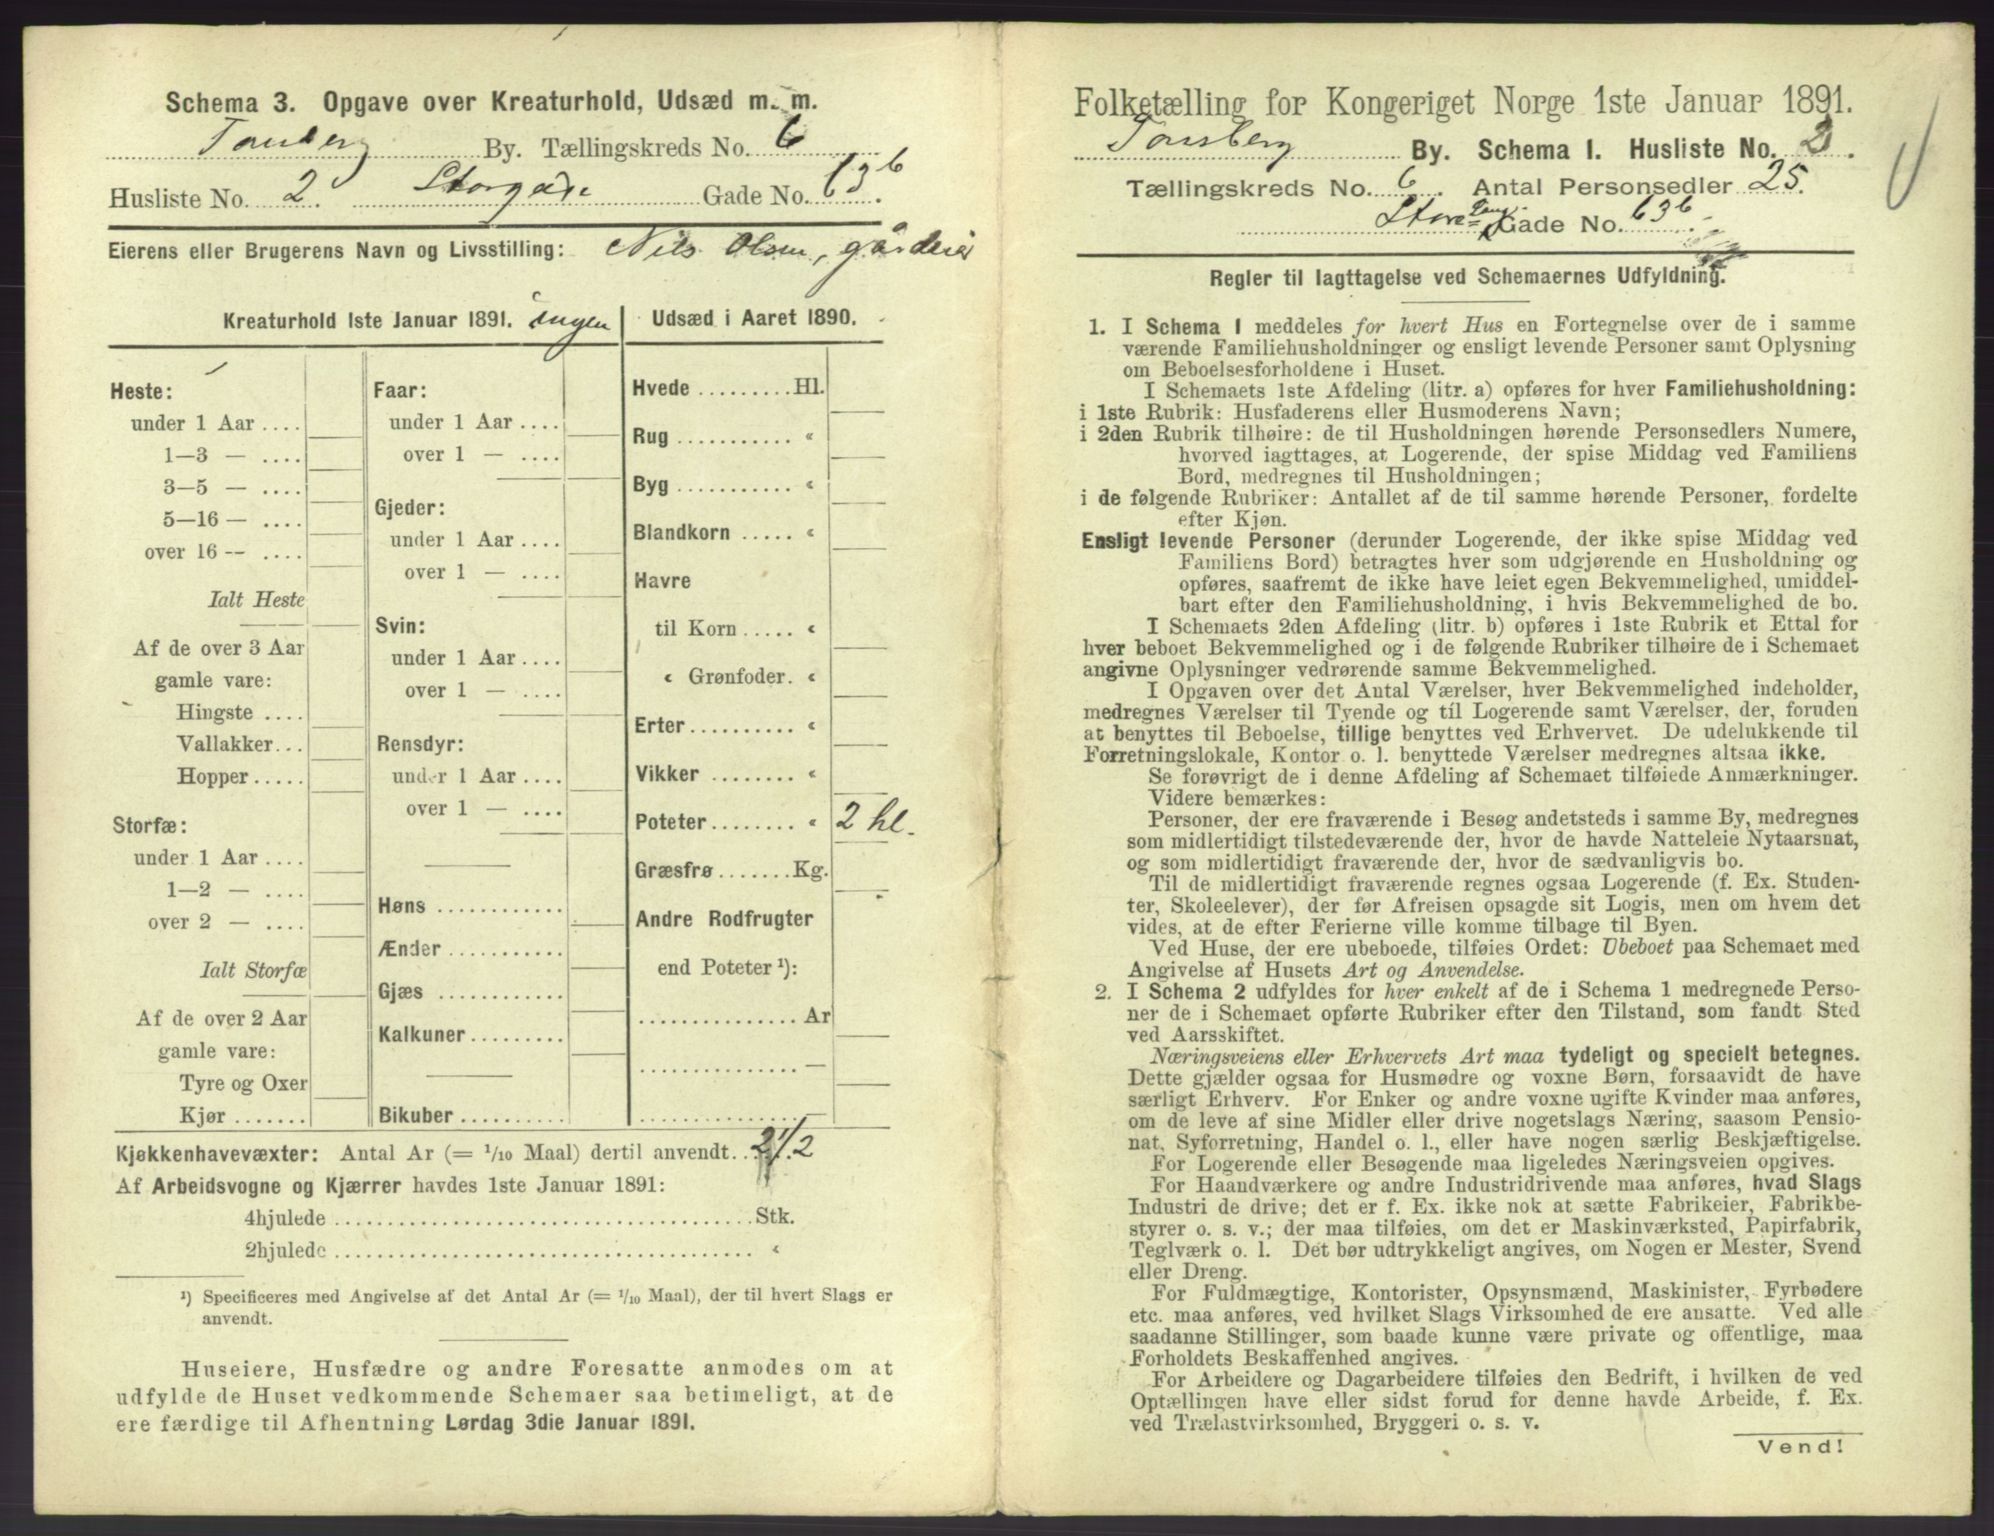 Schema 3. Opgave over Kreaturhold, Udsæd m. m.
Tønsberg By. Tællingskreds No. 6
Husliste No. 2. Storgade Gade No. 63 b.
Eierens eller Brugerens Navn og Livsstilling: Nils Olsen, gårdeier
Kreaturhold 1ste Januar 1891. ingen
Heste:
under 1 Aar ....
1—3 — ....
3—5 — ....
5—16 — ....
over 16 — ....
Ialt Heste
Af de over 3 Aar
gamle vare:
Hingste ....
Vallakker...
Hopper .....
Storfæ:
under 1 Aar ....
1—2 — ....
over 2 — ....
Ialt Storfæ
Af de over 2 Aar
gamle vare:
Tyre og Oxer
Kjør .......
Faar:
under 1 Aar ....
over 1 — ....
Gjeder:
under 1 Aar ....
over 1 — ....
Svin:
under 1 Aar ....
over 1 — ....
Rensdyr:
under 1 Aar ....
over 1 — ....
Høns ............
Ænder ...........
Gjæs ............
Kalkuner .........
Bikuber ..........
Udsæd i Aaret 1890.
Hvede .........Hl.
Rug ........... «
Byg ........... «
Blandkorn ..... «
Havre
til Korn ..... «
« Grønfoder. «
Erter.......... «
Vikker ........ «
Poteter........ « 2 hl.
Græsfrø .......Kg.
Andre Rodfrugter
end Poteter ¹):
............... Ar
............... —
............... —
Kjøkkenhavevæxter: Antal Ar (= 1/10 Maal) dertil anvendt.. 2 1/2
Af Arbeidsvogne og Kjærrer havdes 1ste Januar 1891:
4hjulede ........................................Stk.
2hjulede ........................................ «
¹) Specificeres med Angivelse af det Antal Ar (= 1/10 Maal), der til hvert Slags er
anvendt.
Huseiere, Husfædre og andre Foresatte anmodes om at
udfylde de Huset vedkommende Schemaer saa betimeligt, at de
ere færdige til Afhentning Lørdag 3die Januar 1891.
Folketælling for Kongeriget Norge 1ste Januar 1891.
Tønsberg By. Schema I. Husliste No. 2.
Tællingskreds No. 6. Antal Personsedler 25.
Store Gade No. 63 b.
Regler til Iagttagelse ved Schemaernes Udfyldning.
1. I Schema 1 meddeles for hvert Hus en Fortegnelse over de i samme
værende Familiehusholdninger og ensligt levende Personer samt Oplysning
om Beboelsesforholdene i Huset.
I Schemaets 1ste Afdeling (litr. a) opføres for hver Familiehusholdning:
i 1ste Rubrik: Husfaderens eller Husmoderens Navn;
i 2den Rubrik tilhøire: de til Husholdningen hørende Personsedlers Numere,
hvorved iagttages, at Logerende, der spise Middag ved Familiens
Bord, medregnes til Husholdningen;
i de følgende Rubriker: Antallet af de til samme hørende Personer, fordelte
efter Kjøn.
Ensligt levende Personer (derunder Logerende, der ikke spise Middag ved
Familiens Bord) betragtes hver som udgjørende en Husholdning og
opføres, saafremt de ikke have leiet egen Bekvemmelighed, umiddel-
bart efter den Familiehusholdning, i hvis Bekvemmelighed de bo.
I Schemaets 2den Afdeling (litr. b) opføres i 1ste Rubrik et Ettal for
hver beboet Bekvemmelighed og i de følgende Rubriker tilhøire de i Schemaet
angivne Oplysninger vedrørende samme Bekvemmelighed.
I Opgaven over det Antal Værelser, hver Bekvemmelighed indeholder,
medregnes Værelser til Tyende og til Logerende samt Værelser, der, foruden
at benyttes til Beboelse, tillige benyttes ved Erhvervet. De udelukkende til
Forretningslokale, Kontor o. l. benyttede Værelser medregnes altsaa ikke.
Se forøvrigt de i denne Afdeling af Schemaet tilføiede Anmærkninger.
Videre bemærkes:
Personer, der ere fraværende i Besøg andetsteds i samme By, medregnes
som midlertidigt tilstedeværende der, hvor de havde Natteleie Nytaarsnat,
og som midlertidigt fraværende der, hvor de sædvanligvis bo.
Til de midlertidigt fraværende regnes ogsaa Logerende (f. Ex. Studen-
ter, Skoleelever), der før Afreisen opsagde sit Logis, men om hvem det
vides, at de efter Ferierne ville komme tilbage til Byen.
Ved Huse, der ere ubeboede, tilføies Ordet: Ubeboet paa Schemaet med
Angivelse af Husets Art og Anvendelse.
2. I Schema 2 udfyldes for hver enkelt af de i Schema 1 medregnede Perso-
ner de i Schemaet opførte Rubriker efter den Tilstand, som fandt Sted
ved Aarsskiftet.
Næringsveiens eller Erhvervets Art maa tydeligt og specielt betegnes.
Dette gjælder ogsaa for Husmødre og voxne Børn, forsaavidt de have
særligt Erhverv. For Enker og andre voxne ugifte Kvinder maa anføres,
om de leve af sine Midler eller drive nogetslags Næring, saasom Pensio-
nat, Syforretning, Handel o. l., eller have nogen særlig Beskjæftigelse.
For Logerende eller Besøgende maa ligeledes Næringsveien opgives.
For Haandværkere og andre Industridrivende maa anføres, hvad Slags
Industri de drive; det er f. Ex. ikke nok at sætte Fabrikeier, Fabrikbe-
styrer o. s. v.; der maa tilføies, om det er Maskinværksted, Papirfabrik,
Teglværk o. l. Det bør udtrykkeligt angives, om Nogen er Mester, Svend
eller Dreng.
For Fuldmægtige, Kontorister, Opsynsmænd, Maskinister, Fyrbødere
etc. maa anføres, ved hvilket Slags Virksomhed de ere ansatte. Ved alle
saadanne Stillinger, som baade kunne være private og offentlige, maa
Forholdets Beskaffenhed angives.
For Arbeidere og Dagarbeidere tilføies den Bedrift, i hvilken de ved
Optællingen have eller sidst forud for denne havde Arbeide, f. Ex.
ved Trælastvirksomhed, Bryggeri o. s. v.
Vend!